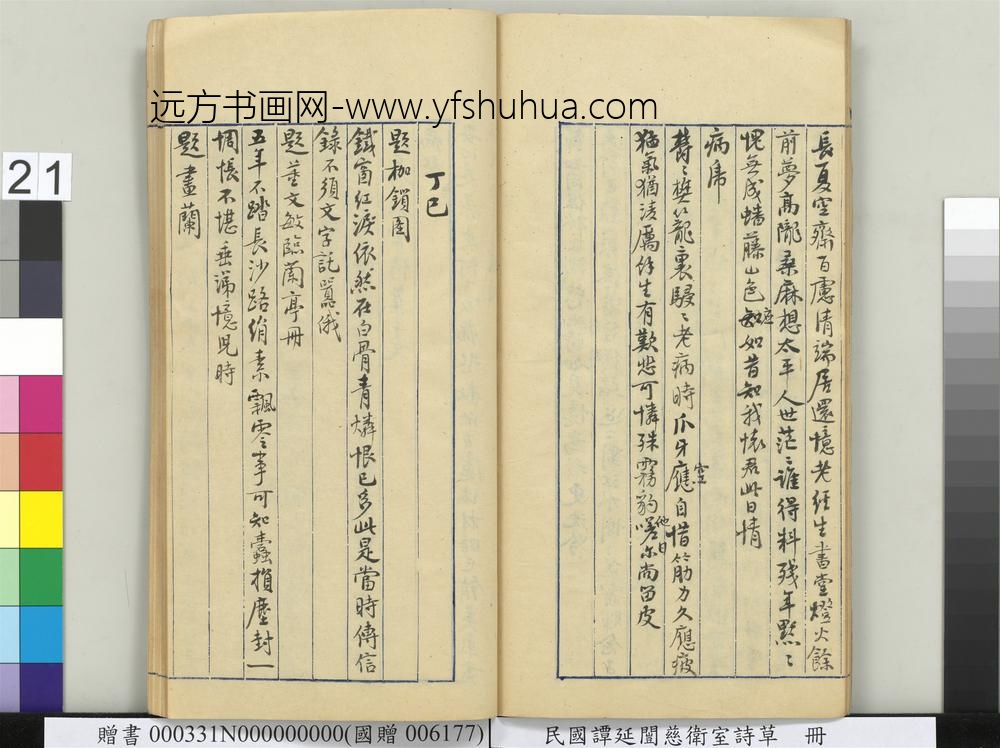 远方书画网-www.yfshuhua.com
21
長夏空齋百慮清端居還憶老經生書堂燈火餘
前夢高隴桑麻想太平人世茫〻誰得料殘年默〻
愧無成蟠藤山色應如昔知我懷君此日情
病虎
欝〻樊籠裏駸〻老病時爪牙應空自惜筋力久應疲
猛氣猶淩厲餘生有歎悲可憐殊霧豹他日嗟尓尚留皮
丁巳
題枷鎖圖
鐵窗紅淚依然在白骨青燐恨已多此是當時傳信
錄不須文字託囂俄
題董文敏臨蘭亭冊
五年不踏長沙路絹素飄零事可知蠹損塵封一
惆悵不堪垂涕憶兒時
題畫蘭
贈書 000331N000000000(國贈 006177)
民國譚延闓慈衛室詩草 冊